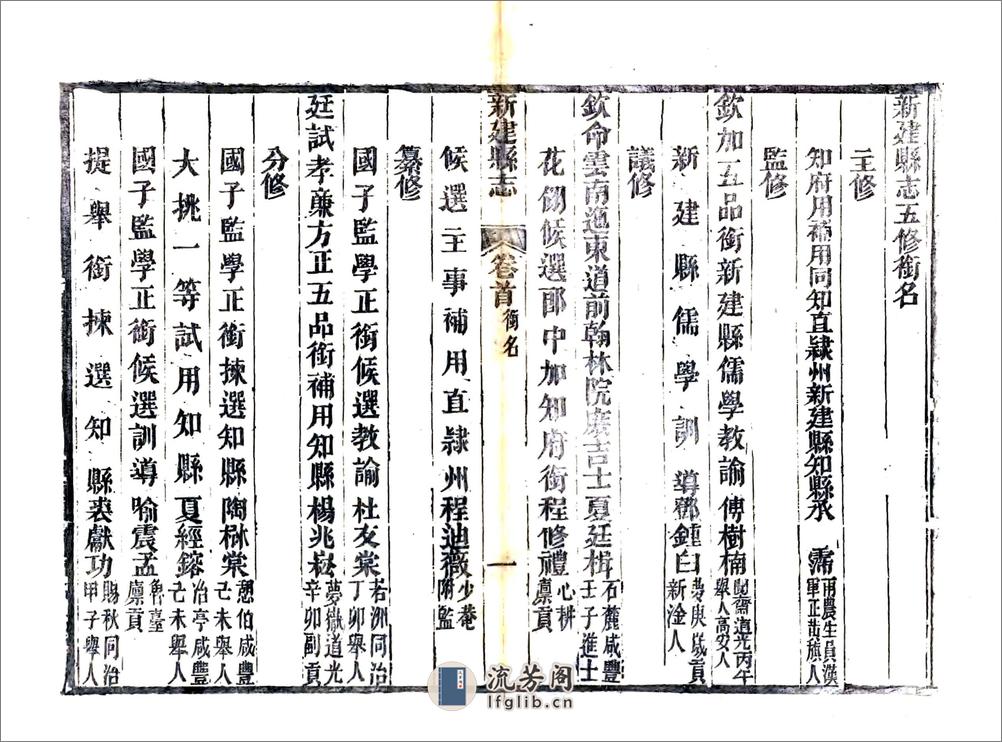 新建縣志五修銜名
主修
知府用補用同知直隸州新建縣知縣承　霈雨農生員漢軍正黃旗人
監修
欽加五品銜新建縣儒學教諭傅樹楠齋道光丙午舉人高安人
新建縣儒學訓導鄧鍾白夢庚歲貢新淦人
議修
欽命雲南迤東道前翰林院庶吉士夏廷楫石麓咸豐壬子進士
花翎候選郎中加知府銜程修禮心耕廩貢
新建縣志　卷首　銜名　一
候選主事補用直隸州程迪薇少菴附監
纂修
國子監學正銜候選教諭杜友棠若洲同治丁卯舉人
廷試孝廉方正五品銜補用知縣楊兆崧夢嶽道光辛卯副貢
分修
國子監學正銜揀選知縣陶棥棠憩伯咸豐己未舉人
大挑一等試用知縣夏經鎔冶亭咸豐己未舉人
國子監學正銜候選訓導喻震孟臺廩貢
提舉銜揀選知縣裘獻功賜秋同治甲子舉人
流芳阁
lfglib.cn